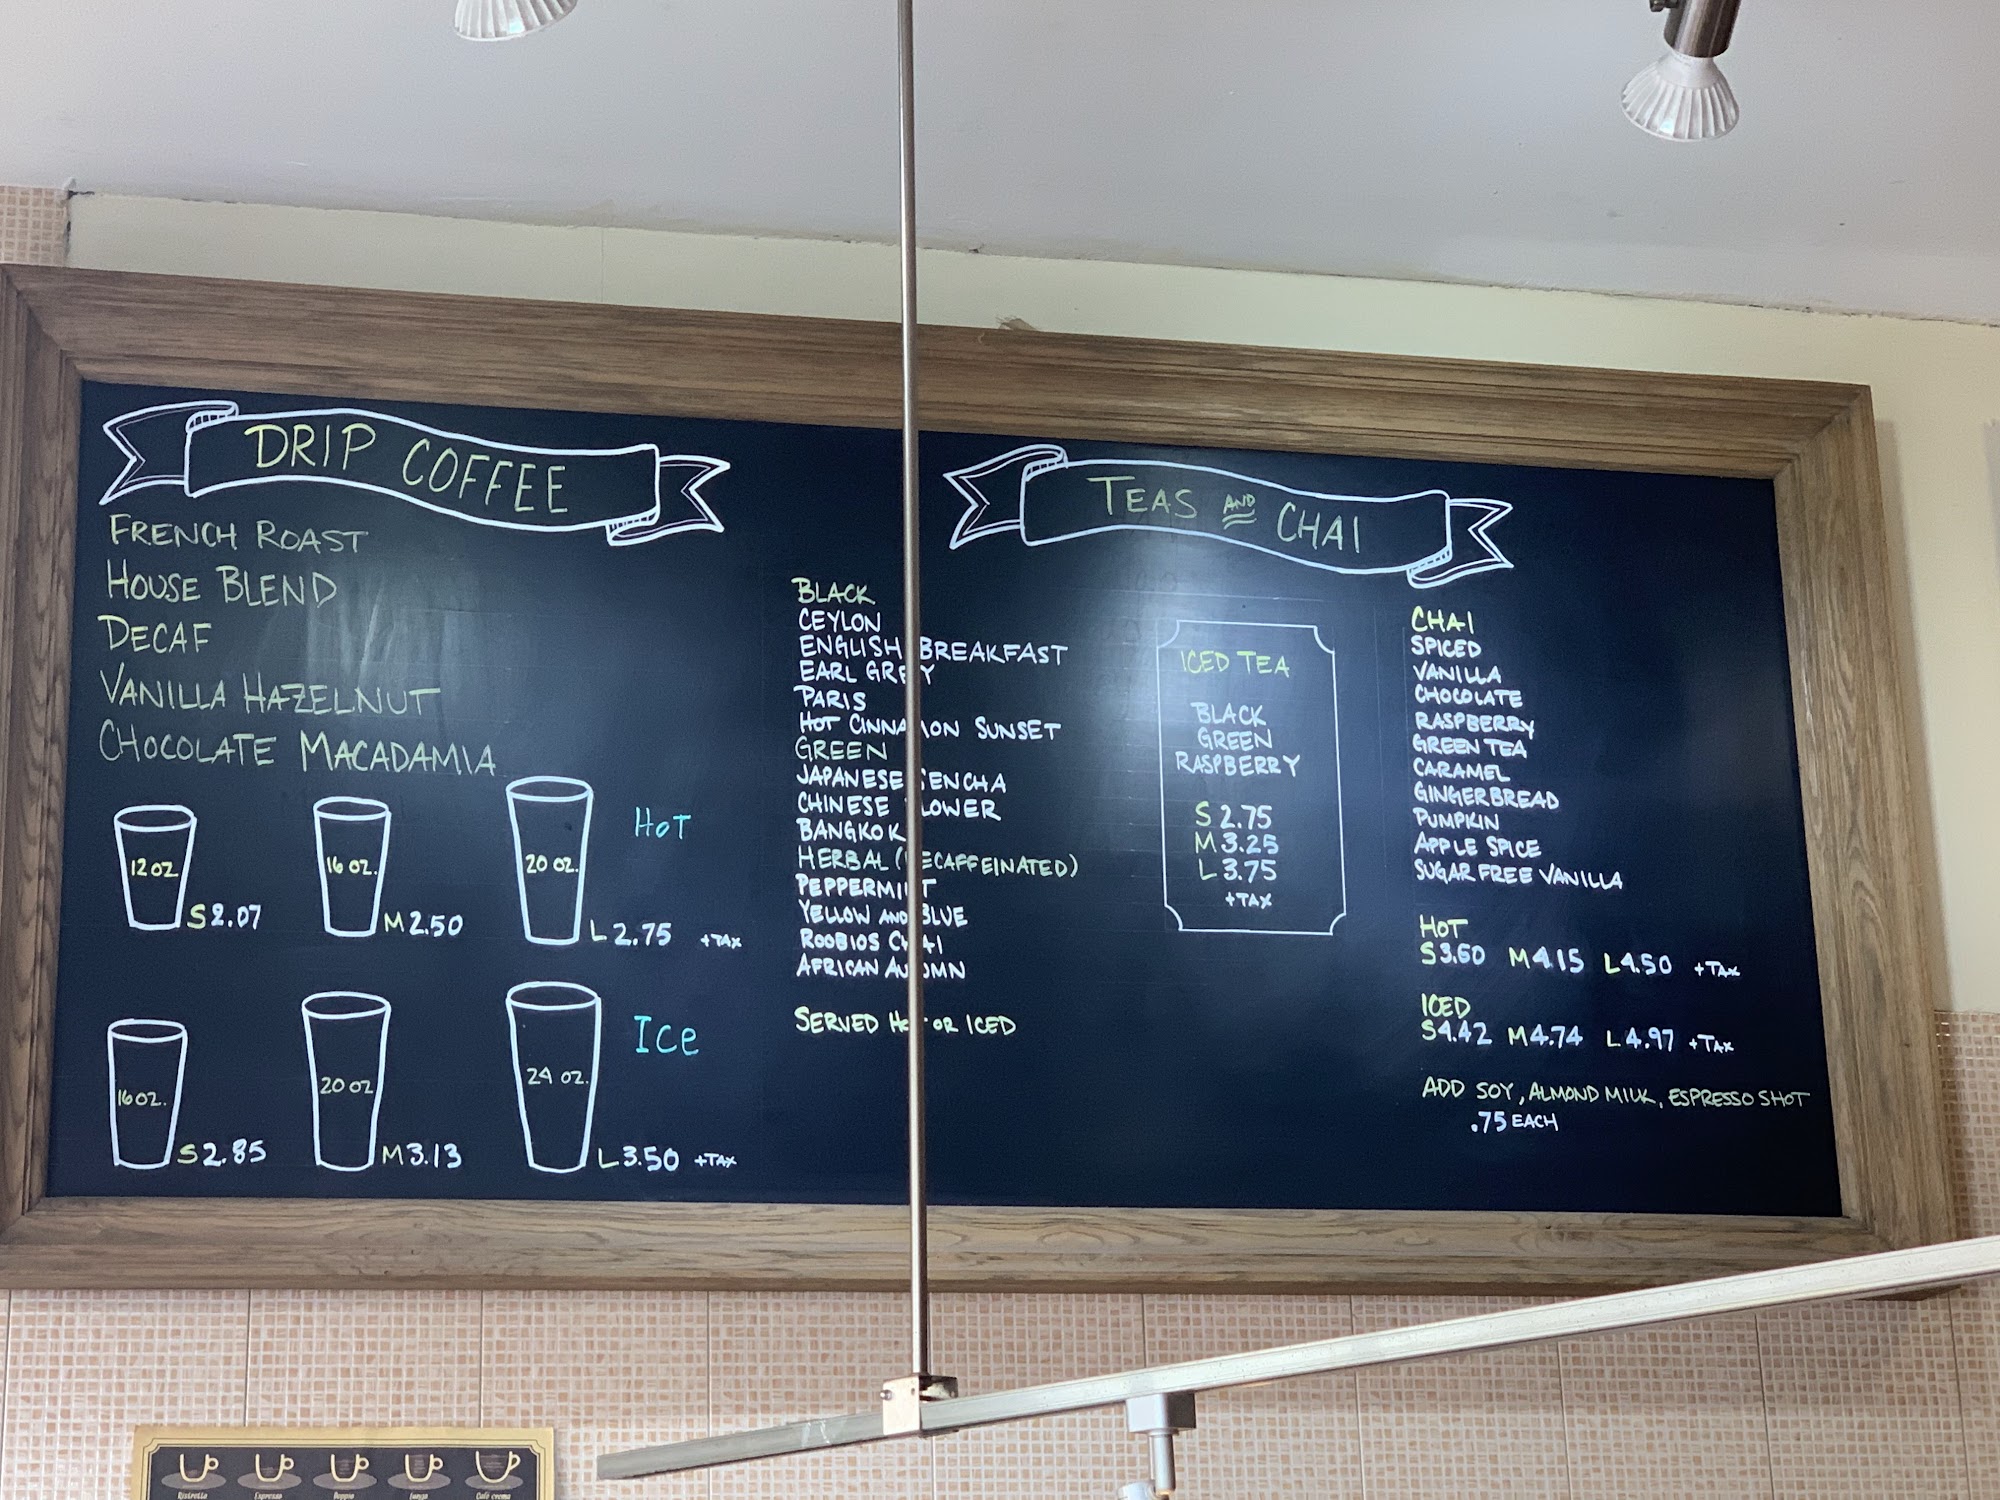 DRIP COFFEE
FRENCH ROAST
HOUSE BLEND
DECAF
VANILLA HAZELNUT
CHOCOLATE MACADAMIA
12 OZ
S 2.07
16 OZ.
M 2.50
20 OZ.
L 2.75 +TAX
HOT
16 OZ.
S 2.85
20 OZ
M 3.13
24 OZ.
L 3.50 +TAX
ICE
TEAS AND CHAI
BLACK
CEYLON
ENGLISH BREAKFAST
EARL GREY
PARIS
HOT CINNAMON SUNSET
GREEN
JAPANESE SENCHA
CHINESE FLOWER
BANGKOK
HERBAL (DECAFFEINATED)
PEPPERMINT
YELLOW AND BLUE
ROOBIOS CHAI
AFRICAN AUTUMN
SERVED HOT OR ICED
ICED TEA
BLACK
GREEN
RASPBERRY
S 2.75
M 3.25
L 3.75
+TAX
CHAI
SPICED
VANILLA
CHOCOLATE
RASPBERRY
GREEN TEA
CARAMEL
GINGERBREAD
PUMPKIN
APPLE SPICE
SUGAR FREE VANILLA
HOT
S 3.60 M 4.15 L 4.50 +TAX
ICED
S 4.42 M 4.74 L 4.97 +TAX
ADD SOY, ALMOND MILK, ESPRESSO SHOT
.75 EACH
Ristretto Espresso Doppio Lungo Café crema